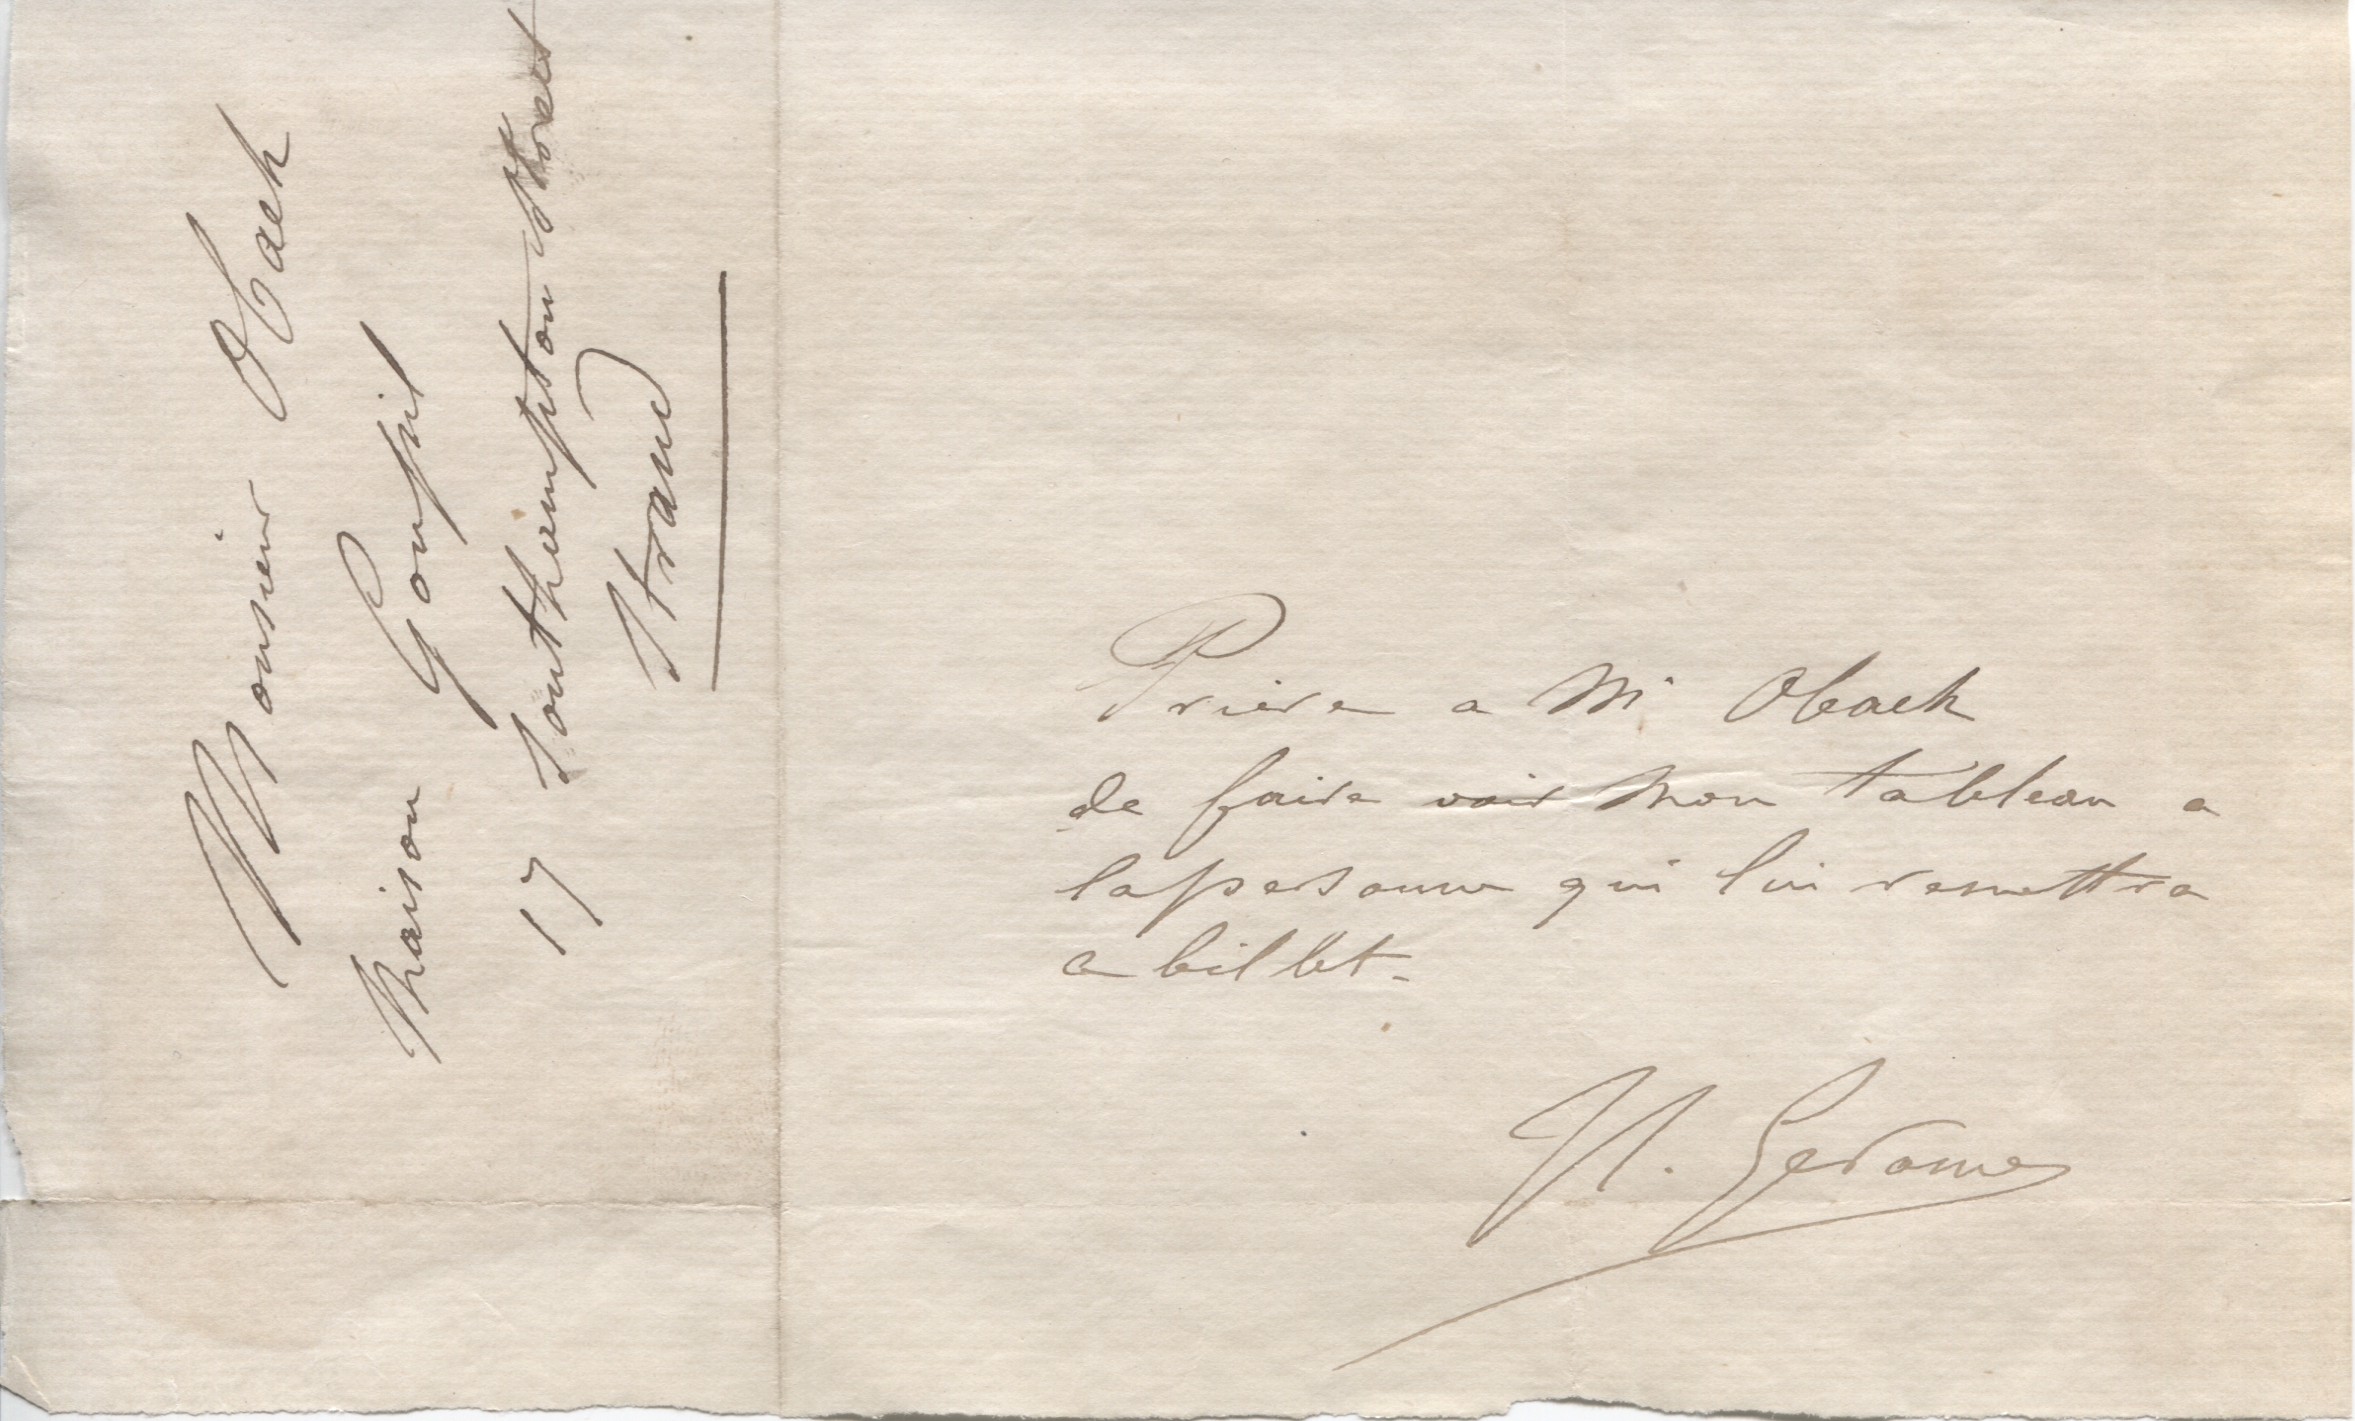 Monsieur Obach
Maison Goupil
17 Southampton Street
Strand
Priere a Mr Obach
de faire voir mon tableau a
la personne qui lui remettra
ce billet.
Gerome